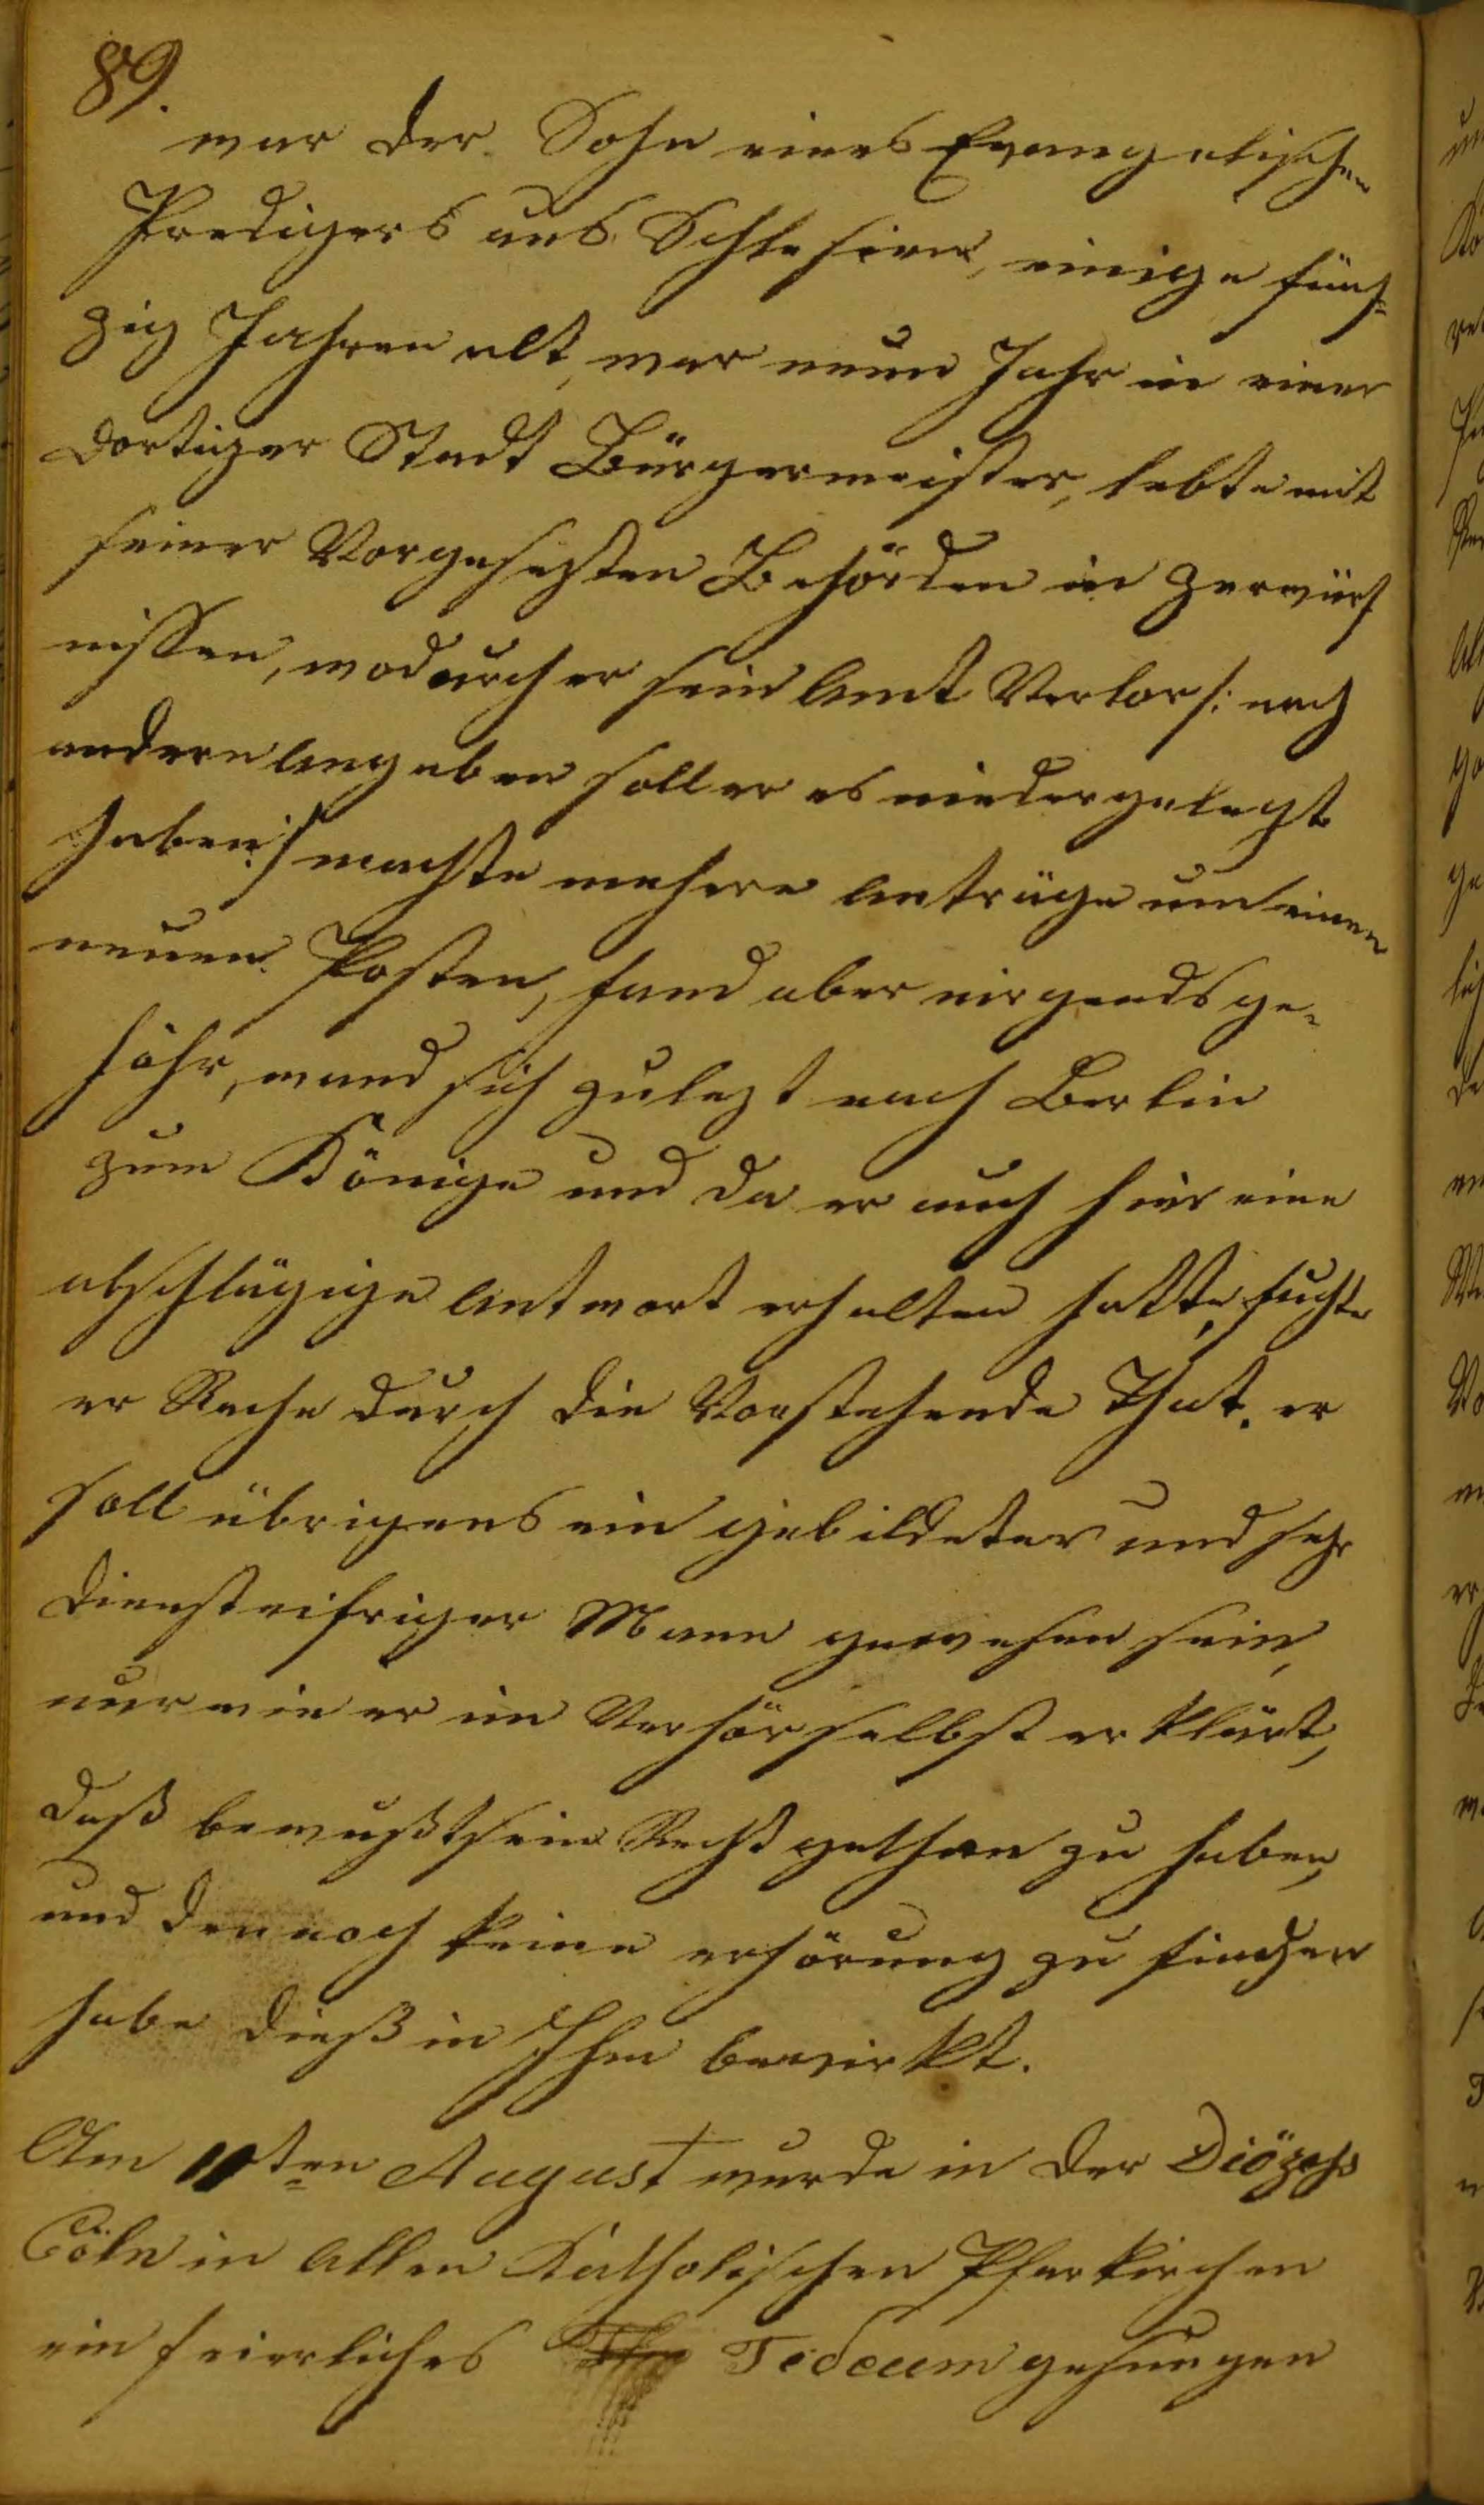 89.
war der Sohn eines Evangelischen
Predigers aus Schlesien, einige fünf=
zig Jahren alt, war neun Jahr in einer
dortiger Stadt Bürgermeister, lebte mit
seiner Vorgesezten Behörden in zerwürf
nissen, wodurch er sein Amt Verlor /: nach
andern Angaben soll er es niedergelegt
haben :/ machte mehere Anträge um einen
neuen Posten, fand aber nirgends ge=
höhr, wand sich zulezt nach Berlin
zum Könige und da er auch hier eine
abschlägige Antwort erhalten hatte, suchte
er Rache durch die Vorstehende That. er
soll übrigens ein gebildeter und sehr
diensteifriger Mann gewesen sein,
nur wie er im Verhör selbst erklärt,
daß bewußtsein Recht gethan zu haben,
und dennoch keine erhörung zu finden
habe dieß in Ihm bewirkt.
Am 11ten August wurde in der Diözehs
Cöln in Allen Katholischen Pfarkirchen
ein feierliches Tedeum gesungen